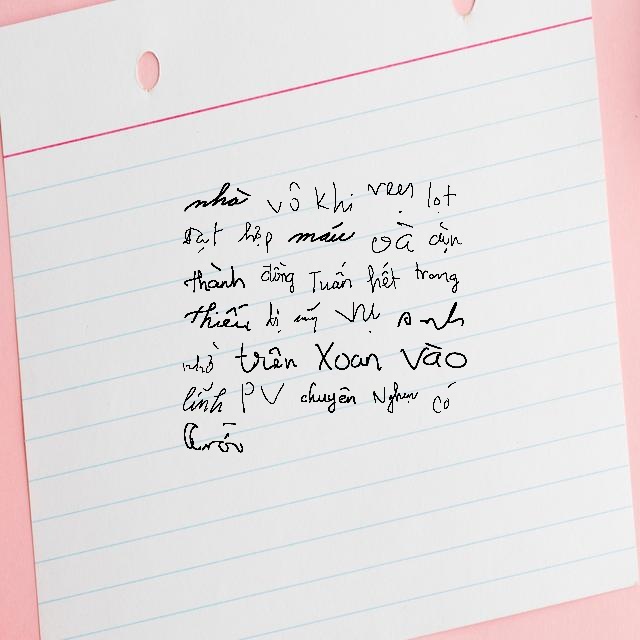 nhà vô khi vẹn lọt
đạt hợp máu và cận
thành đồng Tuấn hết trong
thiếu bị mỹ Vụ anh
nhỏ trên Xoan Vào
lĩnh PV chuyên Nghe có